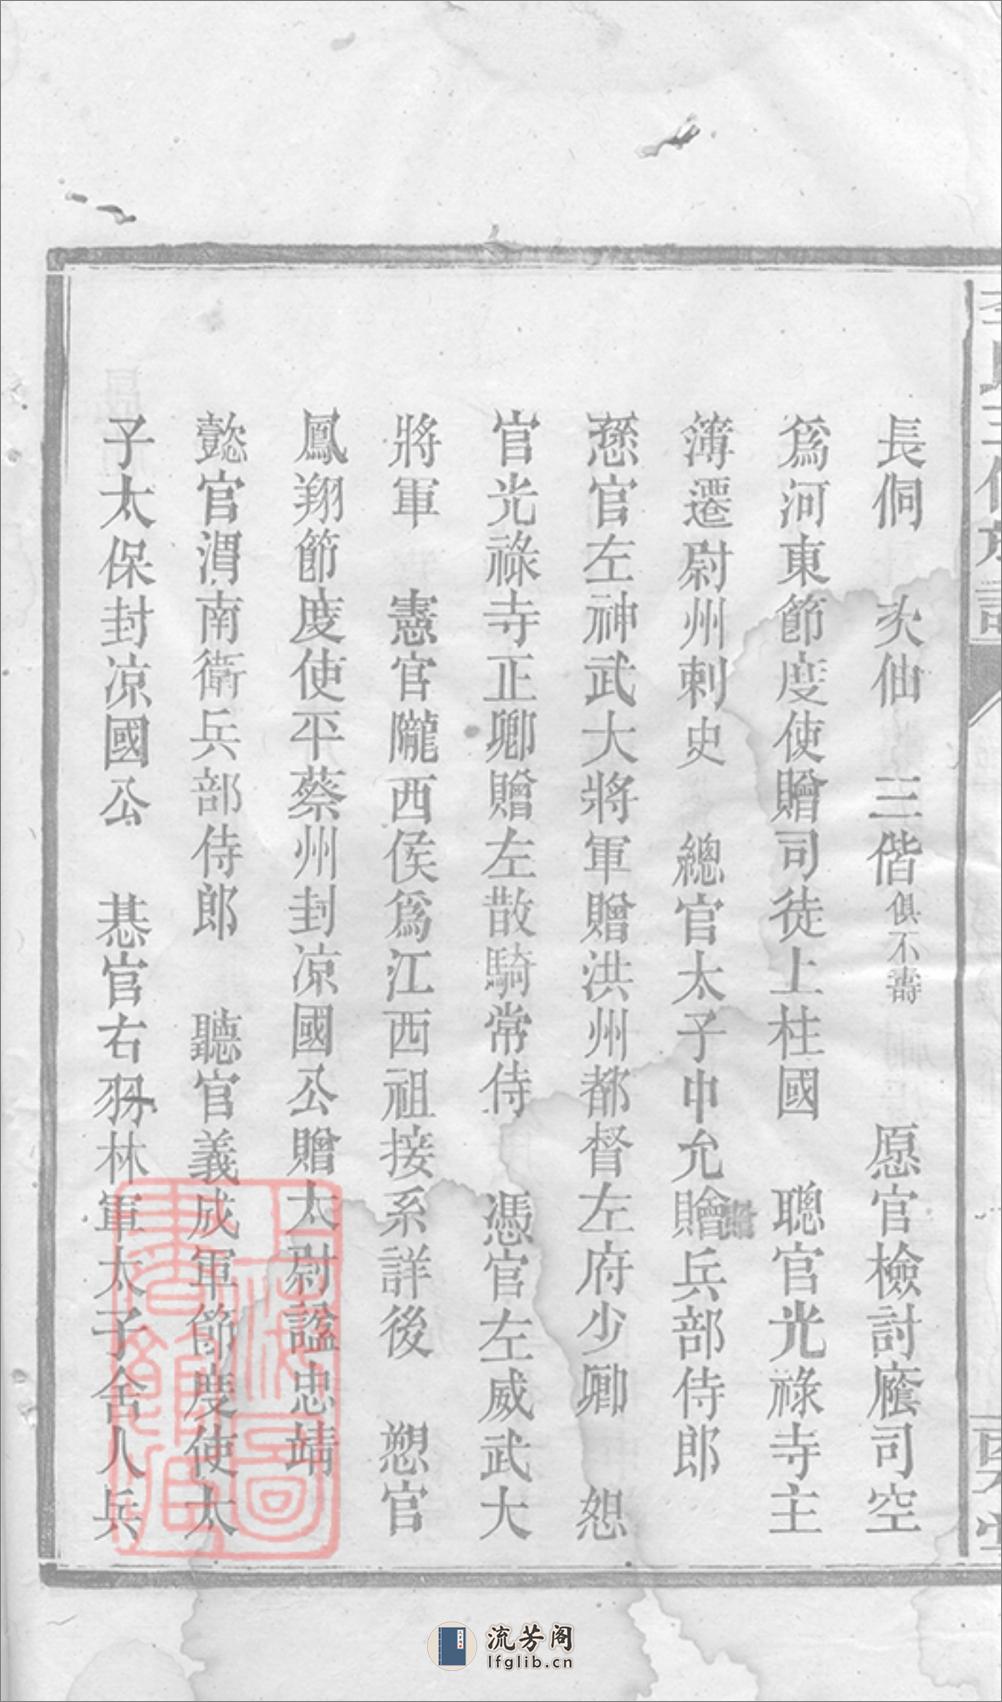 長侗　次仙　三偕俱不壽　　愿官檢討廕司空
爲河東節度使贈司徒上柱國　聰官光祿寺主
簿遷尉州刺史　總官太子中允贈兵部侍郎
愻官左神武大將軍贈洪州都督左府少卿　恕
官光祿寺正卿贈左散騎常侍　憑官左威武大
將軍　憲官隴西侯爲江西祖接系詳後　愬官
鳳翔節度使平蔡州封凉國公贈太尉諡忠靖
懿官渭南衛兵部侍郎　聽官義成軍節度使太
子太保封凉國公　惎官右羽林軍太子舍人兵
上海圖書館藏
流芳阁
lfglib.cn